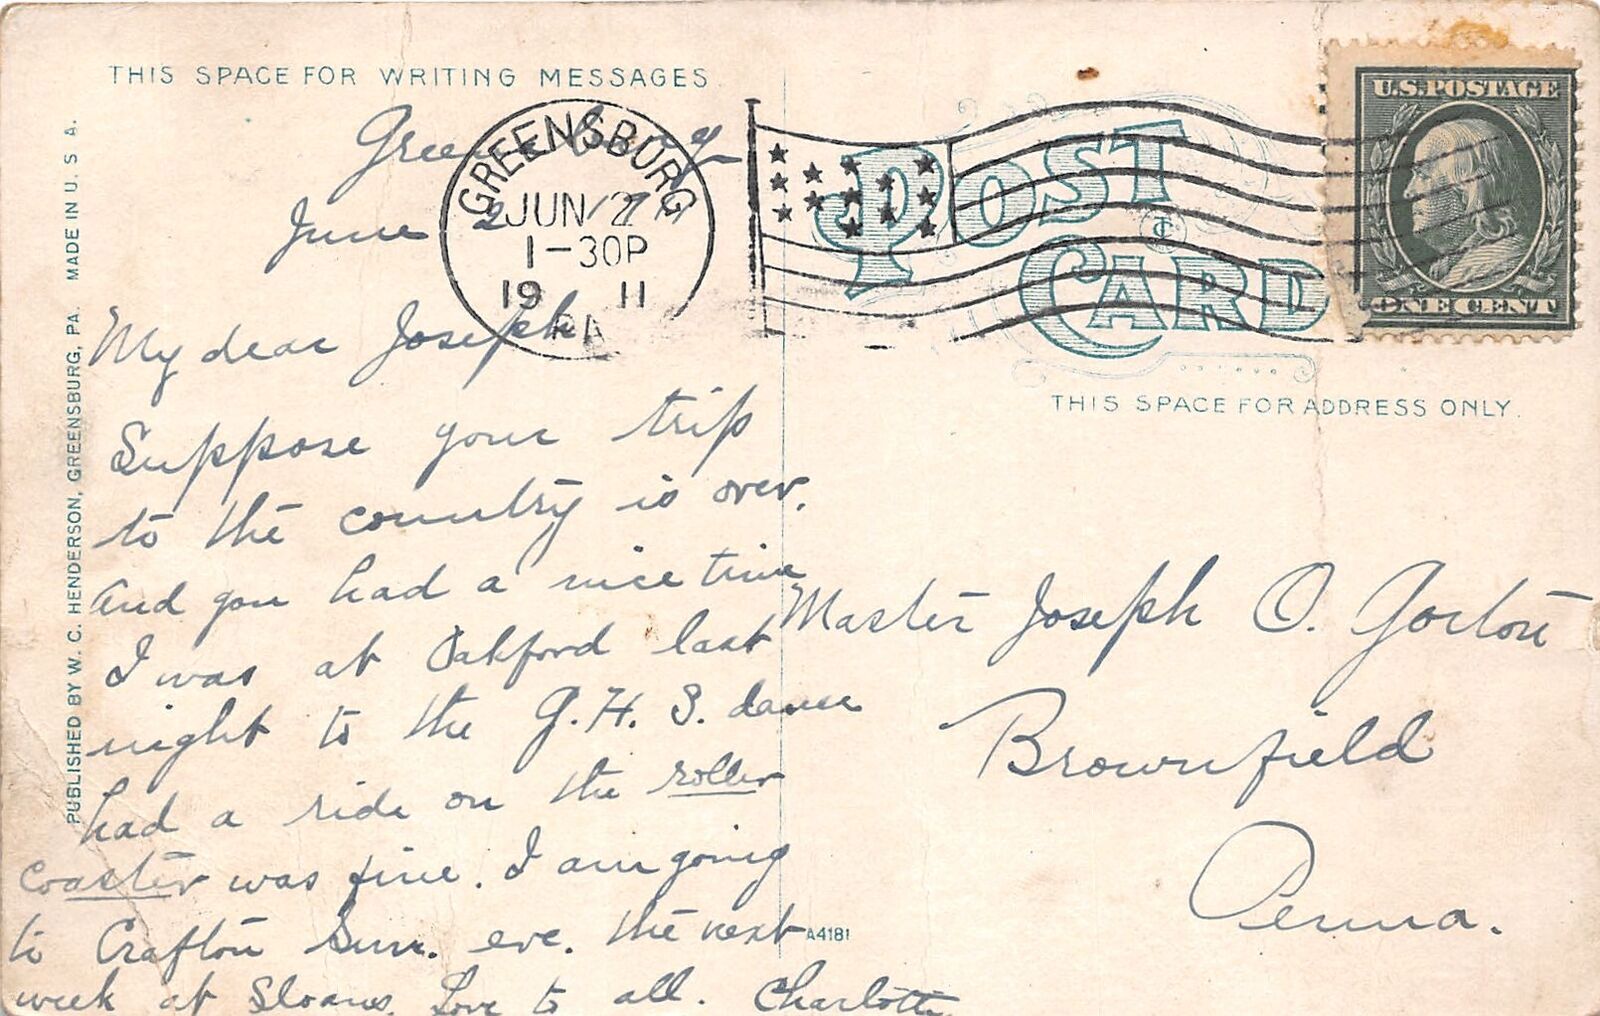 THIS SPACE FOR WRITING MESSAGES
Greensburg
June 2
GREENSBURG
JUN 2
1-30P
19 11
PA
POST
CARD
U.S. POSTAGE
ONE CENT
THIS SPACE FOR ADDRESS ONLY.
PUBLISHED BY W. C. HENDERSON, GREENSBURG, PA. MADE IN U. S. A.
My dear Joseph
Suppose your trip
to the country is over.
And you had a nice time
I was at Oakford last
night to the G. H. S. dance
had a ride on the roller
coaster was fine. I am going
to Crafton Sun. eve. the next
week at Sloans. Love to all. Charlotte
Master Joseph O. Gorton
Brownfield
Penna.
A4181